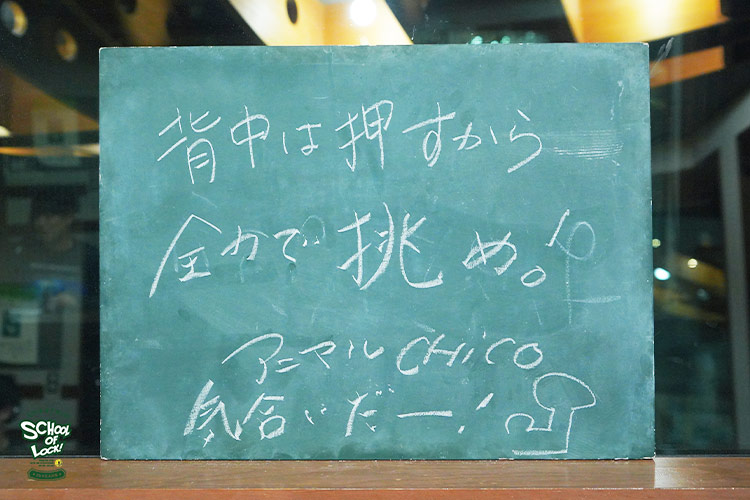 背中は押すから
全力で挑め。!
アニマルCHiCO
気合いだー!
SCHOOL
OF
LOCK!